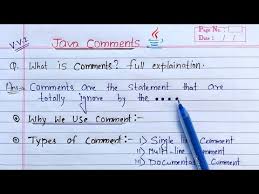 V.V.I
Java Comments
Java
Page No.:
Date: / /
Q. What is Comments? full explaination.
Ans:- Comments are the statement that are
totally ignore by the ....
Why We Use Comment:-
Types of Comment:-
i) Single line Comment
ii) Multi-line Comment
iii) Documentation Comment